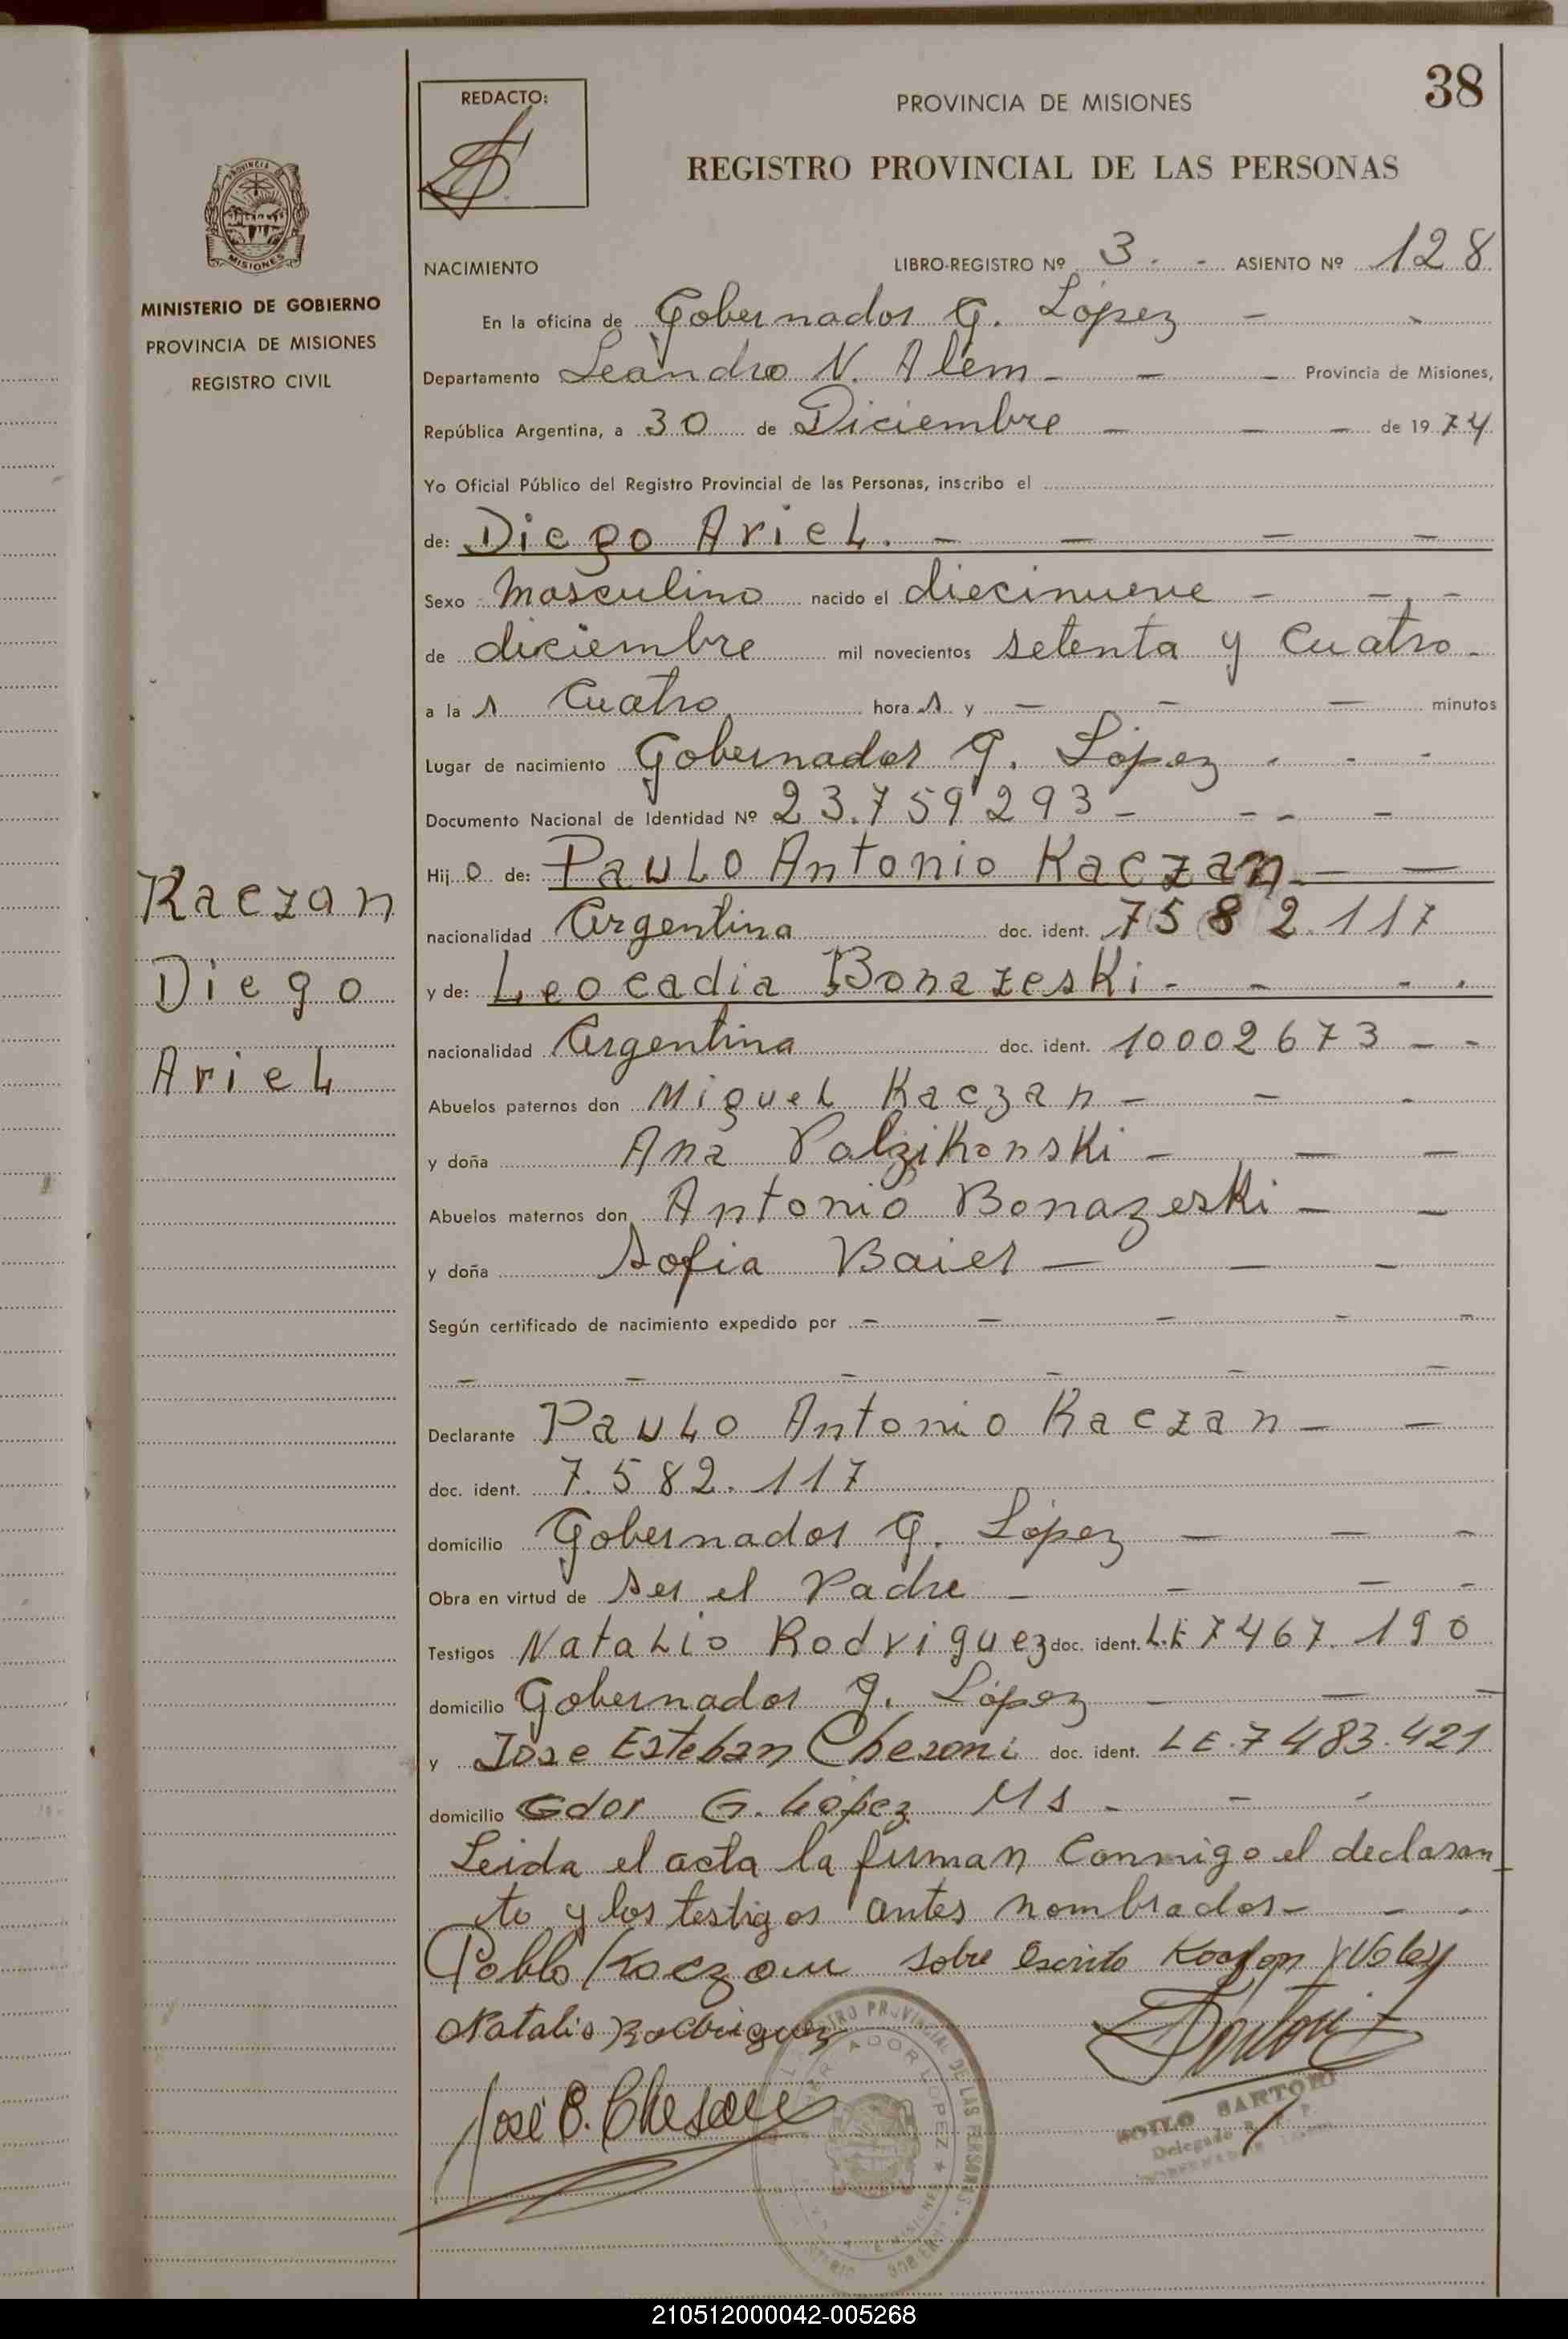 38
REDACTO:
PROVINCIA DE MISIONES
REGISTRO PROVINCIAL DE LAS PERSONAS
PROVINCIA
MISIONES
MINISTERIO DE GOBIERNO
PROVINCIA DE MISIONES
REGISTRO CIVIL
NACIMIENTO LIBRO-REGISTRO Nº 3 - - ASIENTO Nº 128
En la oficina de Gobernador G. López -
Departamento Leandro N. Alem - - - Provincia de Misiones,
República Argentina, a 30 de Diciembre - - - de 1974
Yo Oficial Público del Registro Provincial de las Personas, inscribo el
de: Diego Ariel. - - - -
Sexo masculino nacido el diecinueve - - -
de diciembre mil novecientos setenta y cuatro -
a las cuatro horas y - - - minutos
Lugar de nacimiento Gobernador G. López - - -
Documento Nacional de Identidad Nº 23.759293 - - - -
Hijo de: Paulo Antonio Kaczan - - -
Kaczan
Diego
Ariel
nacionalidad Argentina doc. ident. 7582.117
y de: Leocadia Bonazeski - - - .
nacionalidad Argentina doc. ident. 10002673 - -
Abuelos paternos don Miguel Kaczan - - -
y doña Ana Palzikonski - - -
Abuelos maternos don Antonio Bonazeski - -
y doña Sofia Baier - - -
Según certificado de nacimiento expedido por - - - - -
- - - - - -
Declarante Paulo Antonio Kaczan - -
doc. ident. 7.582.117
domicilio Gobernador G. López - - -
Obra en virtud de ser el Padre - - - -
Testigos Natalio Rodriguez doc. ident. L.E 7467.190
domicilio Gobernador G. López - - -
y Jose Esteban Chesoni doc. ident. LE.7483.421
domicilio Gdor G. López Ms - - -
Leida el acta la firman conmigo el declaran
te y los testigos antes nombrados - - -
Pablo Kaczan sobre escrito Kaczan y Vale
Natalio Rodriguez
José E.
REGISTRO PROVINCIAL DE LAS PERSONAS
GOBERNADOR LOPEZ
MISIONES
SARTORI
Delegado R. P. P.
210512000042-005268